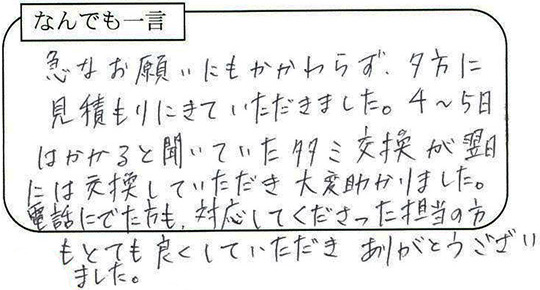 なんでも一言
急なお願いにもかかわらず、夕方に
見積もりにきていただきました。4～5日
はかかると聞いていたタタミ交換が翌日
には交換していただき大変助かりました。
電話にでた方も、対応してくださった担当の方
もとても良くしていただきありがとうござい
ました。